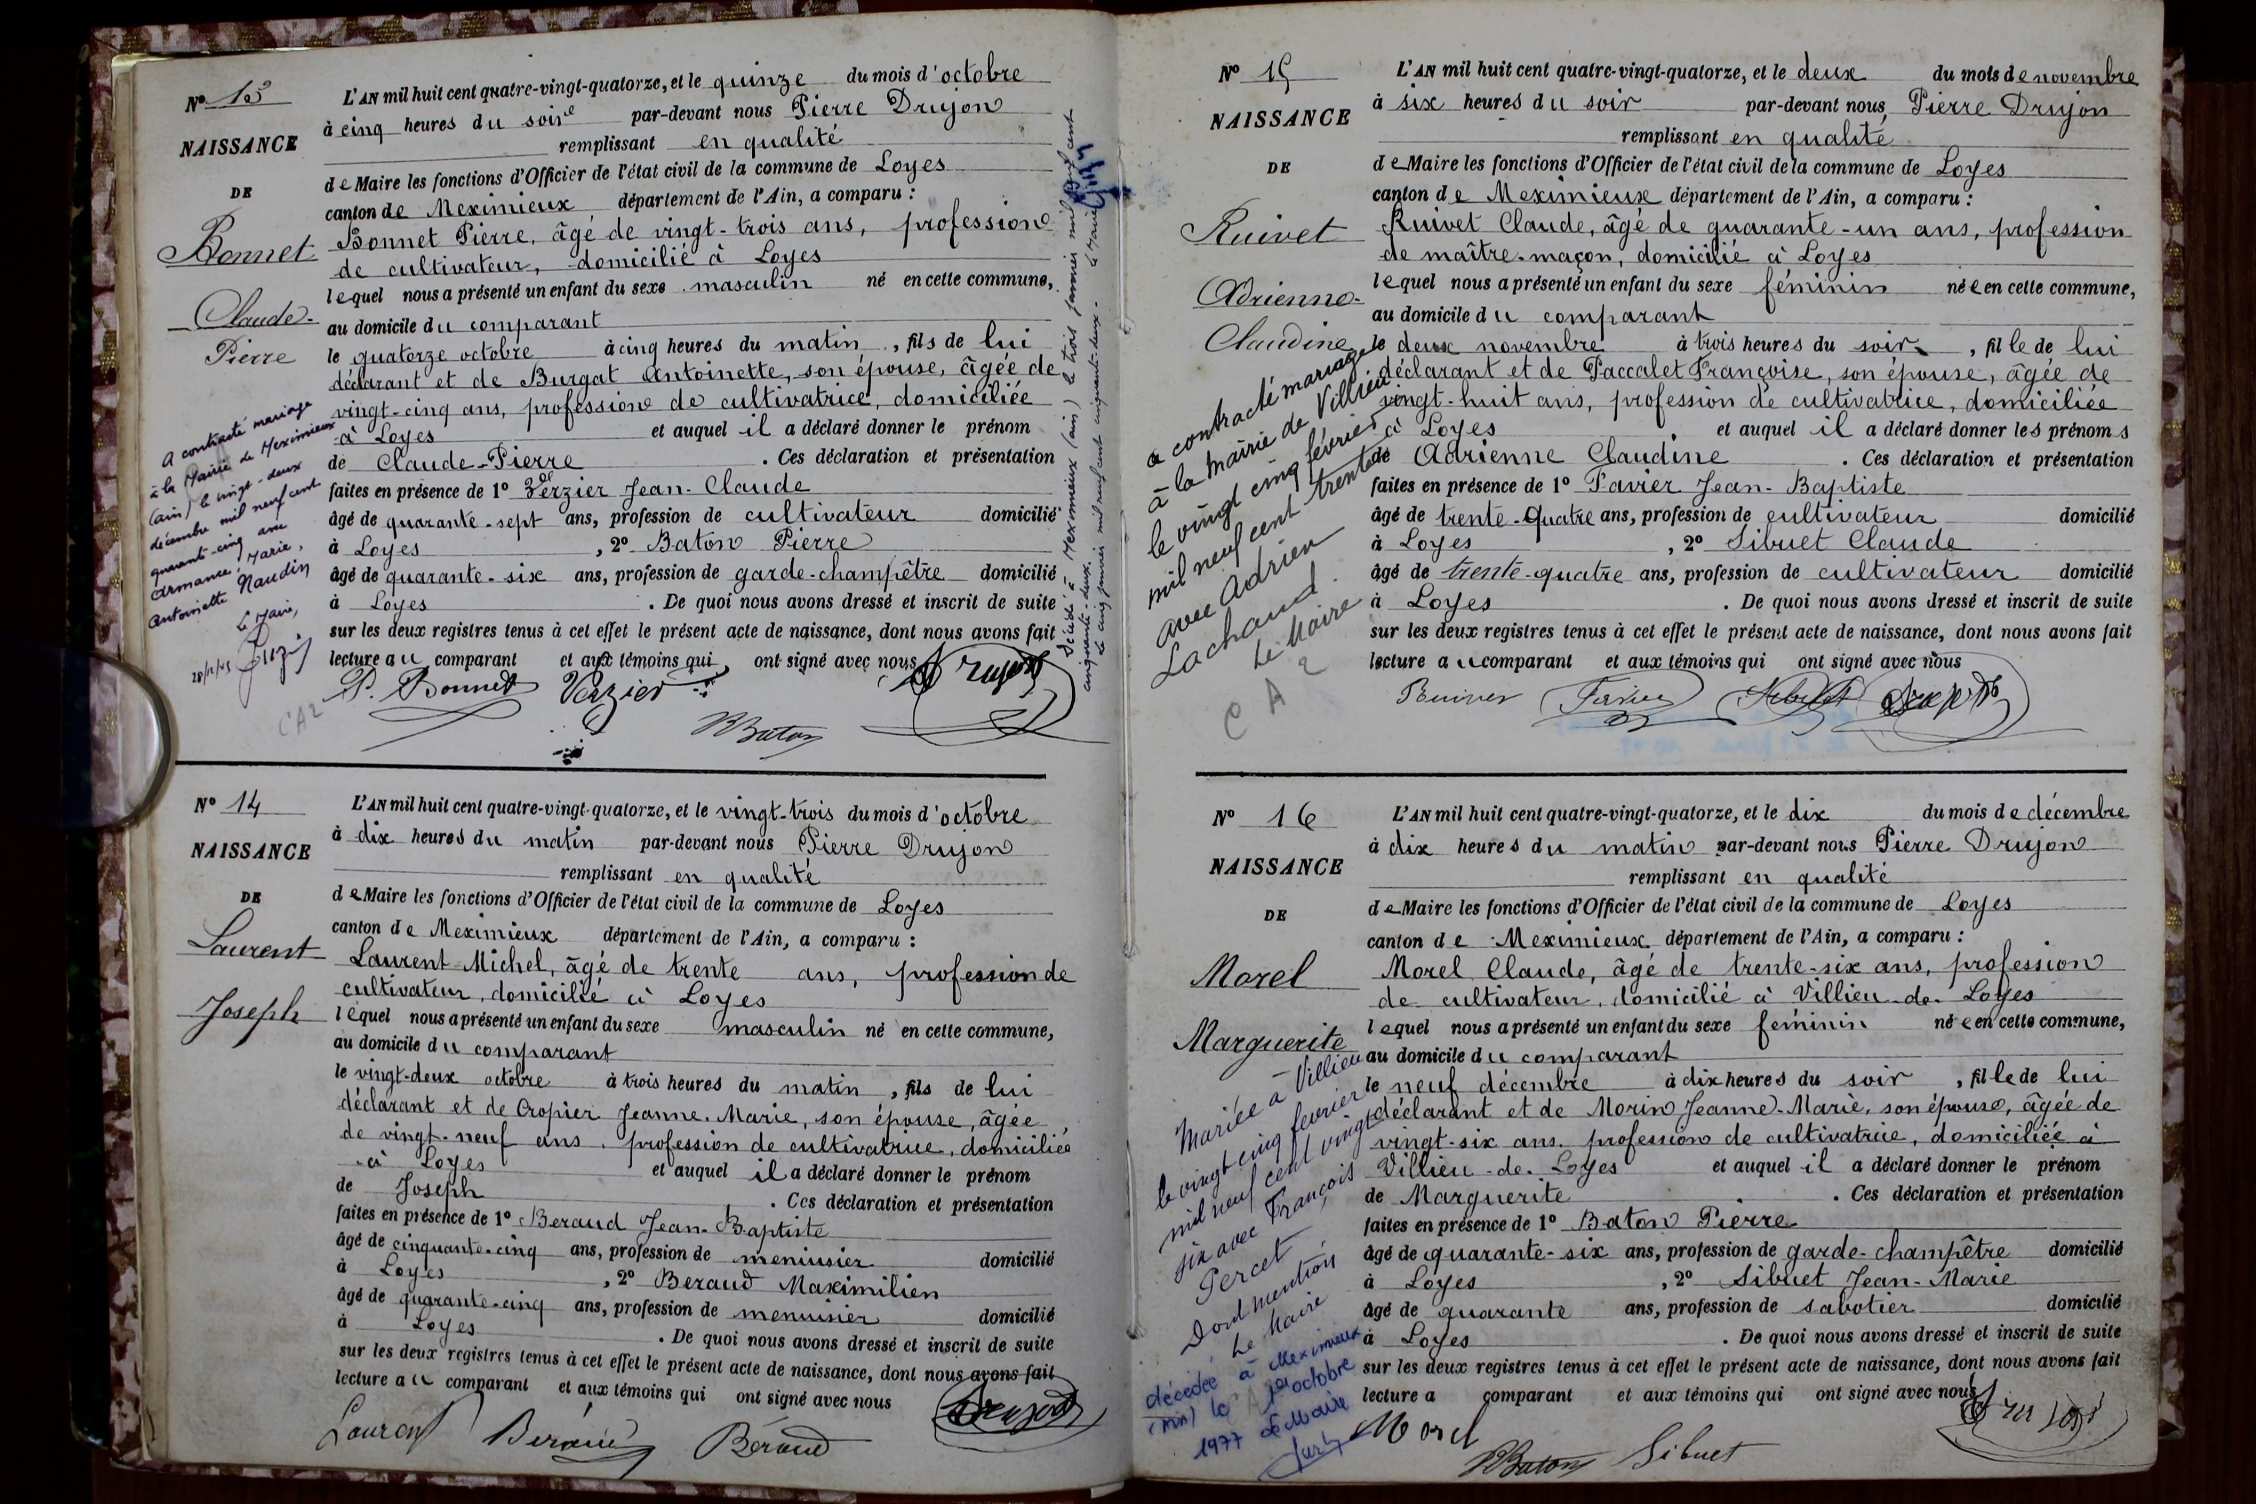 N° 13
NAISSANCE
DE
Bonnet
Claude-
Pierre
L'AN mil huit cent quatre-vingt-quatorze, et le quinze du mois d'octobre
à cinq heures du soir par-devant nous Pierre Drujon
remplissant en qualité
de Maire les fonctions d'Officier de l'état civil de la commune de Loyes
canton de Meximieux département de l'Ain, a comparu :
Bonnet Pierre, âgé de vingt-trois ans, profession
de cultivateur, domicilié à Loyes
lequel nous a présenté un enfant du sexe masculin né en cette commune,
au domicile du comparant
le quatorze octobre à cinq heures du matin, fils de lui
déclarant et de Burgat Antoinette, son épouse, âgée de
vingt-cinq ans, profession de cultivatrice, domiciliée
à Loyes et auquel il a déclaré donner le prénom
de Claude-Pierre. Ces déclaration et présentation
faites en présence de 1° Verzier Jean-Claude
âgé de quarante-sept ans, profession de cultivateur domicilié
à Loyes, 2° Baton Pierre
âgé de quarante-six ans, profession de garde-champêtre domicilié
à Loyes. De quoi nous avons dressé et inscrit de suite
sur les deux registres tenus à cet effet le présent acte de naissance, dont nous avons fait
lecture au comparant et aux témoins qui ont signé avec nous
P. Bonnet Verzier Drujon
PBaton
A contracté mariage
à la Mairie de Meximieux
(ain) le vingt-deux
décembre mil neuf cent
quarante-cinq avec
Armance, Marie,
Antoinette Naudin
Le Maire,
28/12/45
CA2
Décédé à Meximieux (ain) le trois janvier mil neuf cent
cinquante-deux.
Le cinq janvier mil neuf cent cinquante-deux. Le Maire
N° 14
NAISSANCE
DE
Laurent
Joseph
L'AN mil huit cent quatre-vingt-quatorze, et le vingt-trois du mois d'octobre
à dix heures du matin par-devant nous Pierre Drujon
remplissant en qualité
de Maire les fonctions d'Officier de l'état civil de la commune de Loyes
canton de Meximieux département de l'Ain, a comparu :
Laurent Michel, âgé de trente ans, profession de
cultivateur, domicilié à Loyes
lequel nous a présenté un enfant du sexe masculin né en cette commune,
au domicile du comparant
le vingt-deux octobre à trois heures du matin, fils de lui
déclarant et de Cropier Jeanne-Marie, son épouse, âgée
de vingt-neuf ans, profession de cultivatrice, domiciliée
à Loyes et auquel il a déclaré donner le prénom
de Joseph. Ces déclaration et présentation
faites en présence de 1° Beraud Jean-Baptiste
âgé de cinquante-cinq ans, profession de menuisier domicilié
à Loyes, 2° Beraud Maximilien
âgé de quarante-cinq ans, profession de menuisier domicilié
à Loyes. De quoi nous avons dressé et inscrit de suite
sur les deux registres tenus à cet effet le présent acte de naissance, dont nous avons fait
lecture au comparant et aux témoins qui ont signé avec nous
Laurent Béraud Béraud Drujon
N° 15
NAISSANCE
DE
Ruivet
Adrienne-
Claudine
L'AN mil huit cent quatre-vingt-quatorze, et le deux du mois de novembre
à six heures du soir par-devant nous Pierre Drujon
remplissant en qualité
de Maire les fonctions d'Officier de l'état civil de la commune de Loyes
canton de Meximieux département de l'Ain, a comparu :
Ruivet Claude, âgé de quarante-un ans, profession
de maître-maçon, domicilié à Loyes
lequel nous a présenté un enfant du sexe féminin née en cette commune,
au domicile du comparant
le deux novembre à trois heures du soir, fille de lui
déclarant et de Paccalet Françoise, son épouse, âgée de
vingt-huit ans, profession de cultivatrice, domiciliée
à Loyes et auquel il a déclaré donner les prénoms
de Adrienne Claudine. Ces déclaration et présentation
faites en présence de 1° Favier Jean-Baptiste
âgé de trente-quatre ans, profession de cultivateur domicilié
à Loyes, 2° Sibuet Claude
âgé de trente-quatre ans, profession de cultivateur domicilié
à Loyes. De quoi nous avons dressé et inscrit de suite
sur les deux registres tenus à cet effet le présent acte de naissance, dont nous avons fait
lecture au comparant et aux témoins qui ont signé avec nous
Ruivet Favier Sibuet Drujon
a contracté mariage
à la mairie de Villieu
le vingt cinq février
mil neuf cent trente
avec Adrien
Lachaud.
Le Maire
CA2
N° 16
NAISSANCE
DE
Morel
Marguerite
L'AN mil huit cent quatre-vingt-quatorze, et le dix du mois de décembre
à dix heures du matin par-devant nous Pierre Drujon
remplissant en qualité
de Maire les fonctions d'Officier de l'état civil de la commune de Loyes
canton de Meximieux département de l'Ain, a comparu :
Morel Claude, âgé de trente-six ans, profession
de cultivateur, domicilié à Villieu-de-Loyes
lequel nous a présenté un enfant du sexe féminin née en cette commune,
au domicile du comparant
le neuf décembre à dix heures du soir, fille de lui
déclarant et de Morin Jeanne-Marie, son épouse, âgée de
vingt-six ans, profession de cultivatrice, domiciliée à
Villieu-de-Loyes et auquel il a déclaré donner le prénom
de Marguerite. Ces déclaration et présentation
faites en présence de 1° Baton Pierre
âgé de quarante-six ans, profession de garde-champêtre domicilié
à Loyes, 2° Sibuet Jean-Marie
âgé de quarante ans, profession de sabotier domicilié
à Loyes. De quoi nous avons dressé et inscrit de suite
sur les deux registres tenus à cet effet le présent acte de naissance, dont nous avons fait
lecture a comparant et aux témoins qui ont signé avec nous
Morel PBaton Sibuet Drujon
Mariée à Villieu
le vingt cinq fevrier
mil neuf cent vingt
six avec François
Percet
Dont mention
Le Maire
décédée à Meximieux
(Ain) le 1er octobre
1977 Le Maire